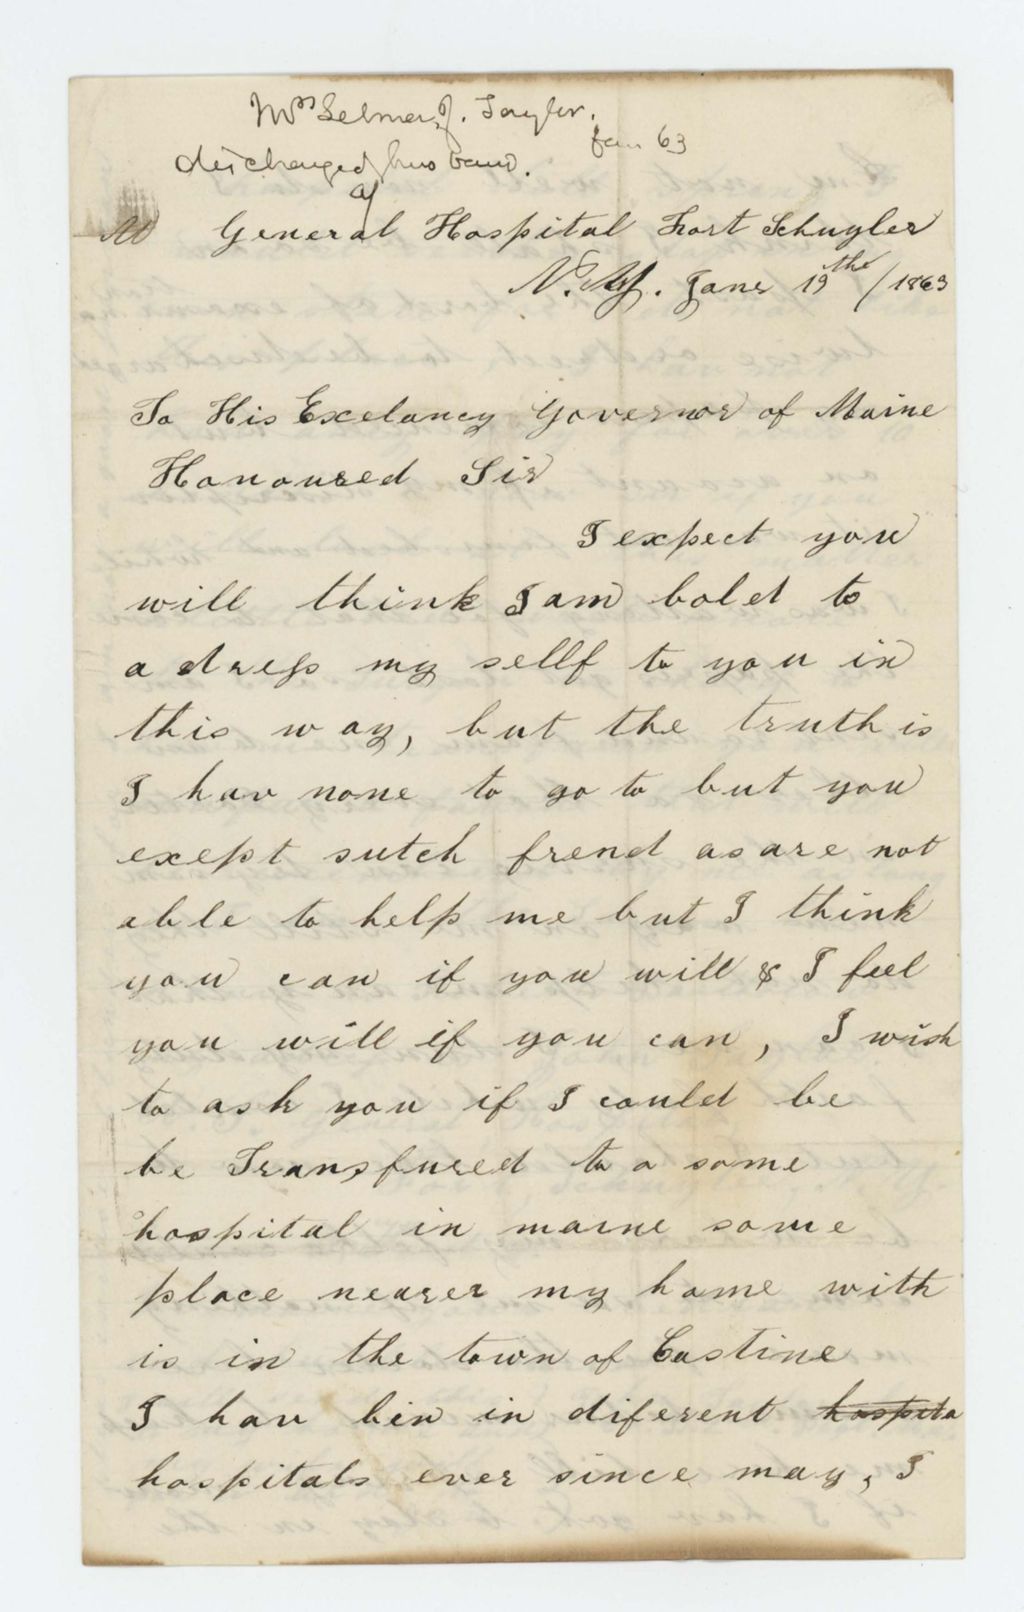 Mrs Selmer J. Taylor.
Jan 63
discharged husband.
of
General Hospital Fort Schuyler
N. Y. Janr 19the / 1863
To His Excelancy Governor of Maine
Honoured Sir
I expect you
will think I am bold to
adress my sellf to you in
this way, but the truth is
I hav none to go to but you
exept sutch frend as are not
able to help me but I think
you can if you will & I feel
you will if you can, I wish
to ask you if I could be
be Transfured to a some
hospital in maine some
place nearer my home with
is in the town of Castine
I hav bin in diferent hospita
hospitals ever since may, I